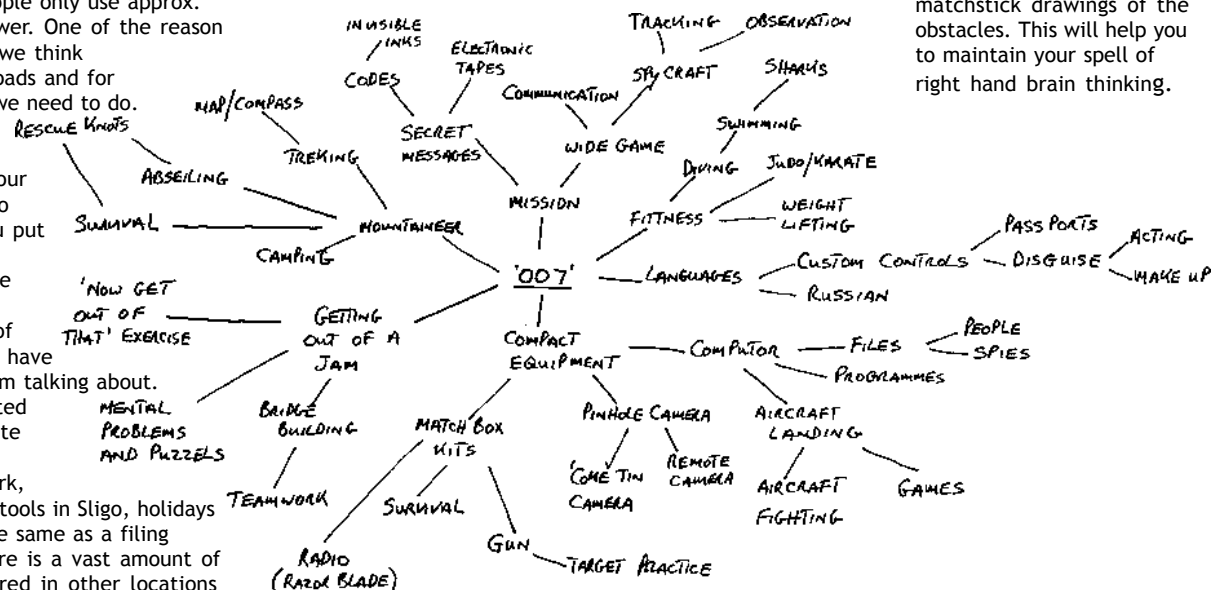 ople only use approx.
wer. One of the reason
we think
oads and for
we need to do.
our
o
u put
e
of
have
m talking about.
ted
te
rk,
tools in Sligo, holidays
e same as a filing
re is a vast amount of
red in other locations
matchstick drawings of the
obstacles. This will help you
to maintain your spell of
right hand brain thinking.
'007'
MISSION
SECRET
MESSAGES
CODES
INVISIBLE
INKS
ELECTRONIC
TAPES
WIDE GAME
COMMUNICATION
SPYCRAFT
TRACKING
OBSERVATION
FITTNESS
DIVING
SWIMMING
SHARKS
JUDO/KARATE
WEIGHT
LIFTING
LANGUAGES
CUSTOM CONTROLS
PASSPORTS
DISGUISE
ACTING
MAKE UP
RUSSIAN
COMPACT
EQUIPMENT
COMPUTOR
FILES
PEOPLE
SPIES
PROGRAMMES
AIRCRAFT
LANDING
AIRCRAFT
FIGHTING
GAMES
PINHOLE CAMERA
'COKE' TIN
CAMERA
REMOTE
CAMERA
MATCH BOX
KITS
GUN
TARGET PRACTICE
SURVIVAL
RADIO
(RAZOR BLADE)
GETTING
OUT OF A
JAM
BRIDGE
BUILDING
TEAMWORK
MENTAL
PROBLEMS
AND PUZZELS
'NOW GET
OUT OF
THAT' EXERCISE
MOUNTAINEER
CAMPING
SURVIVAL
ABSEILING
RESCUE KNOTS
TREKING
MAP/COMPASS